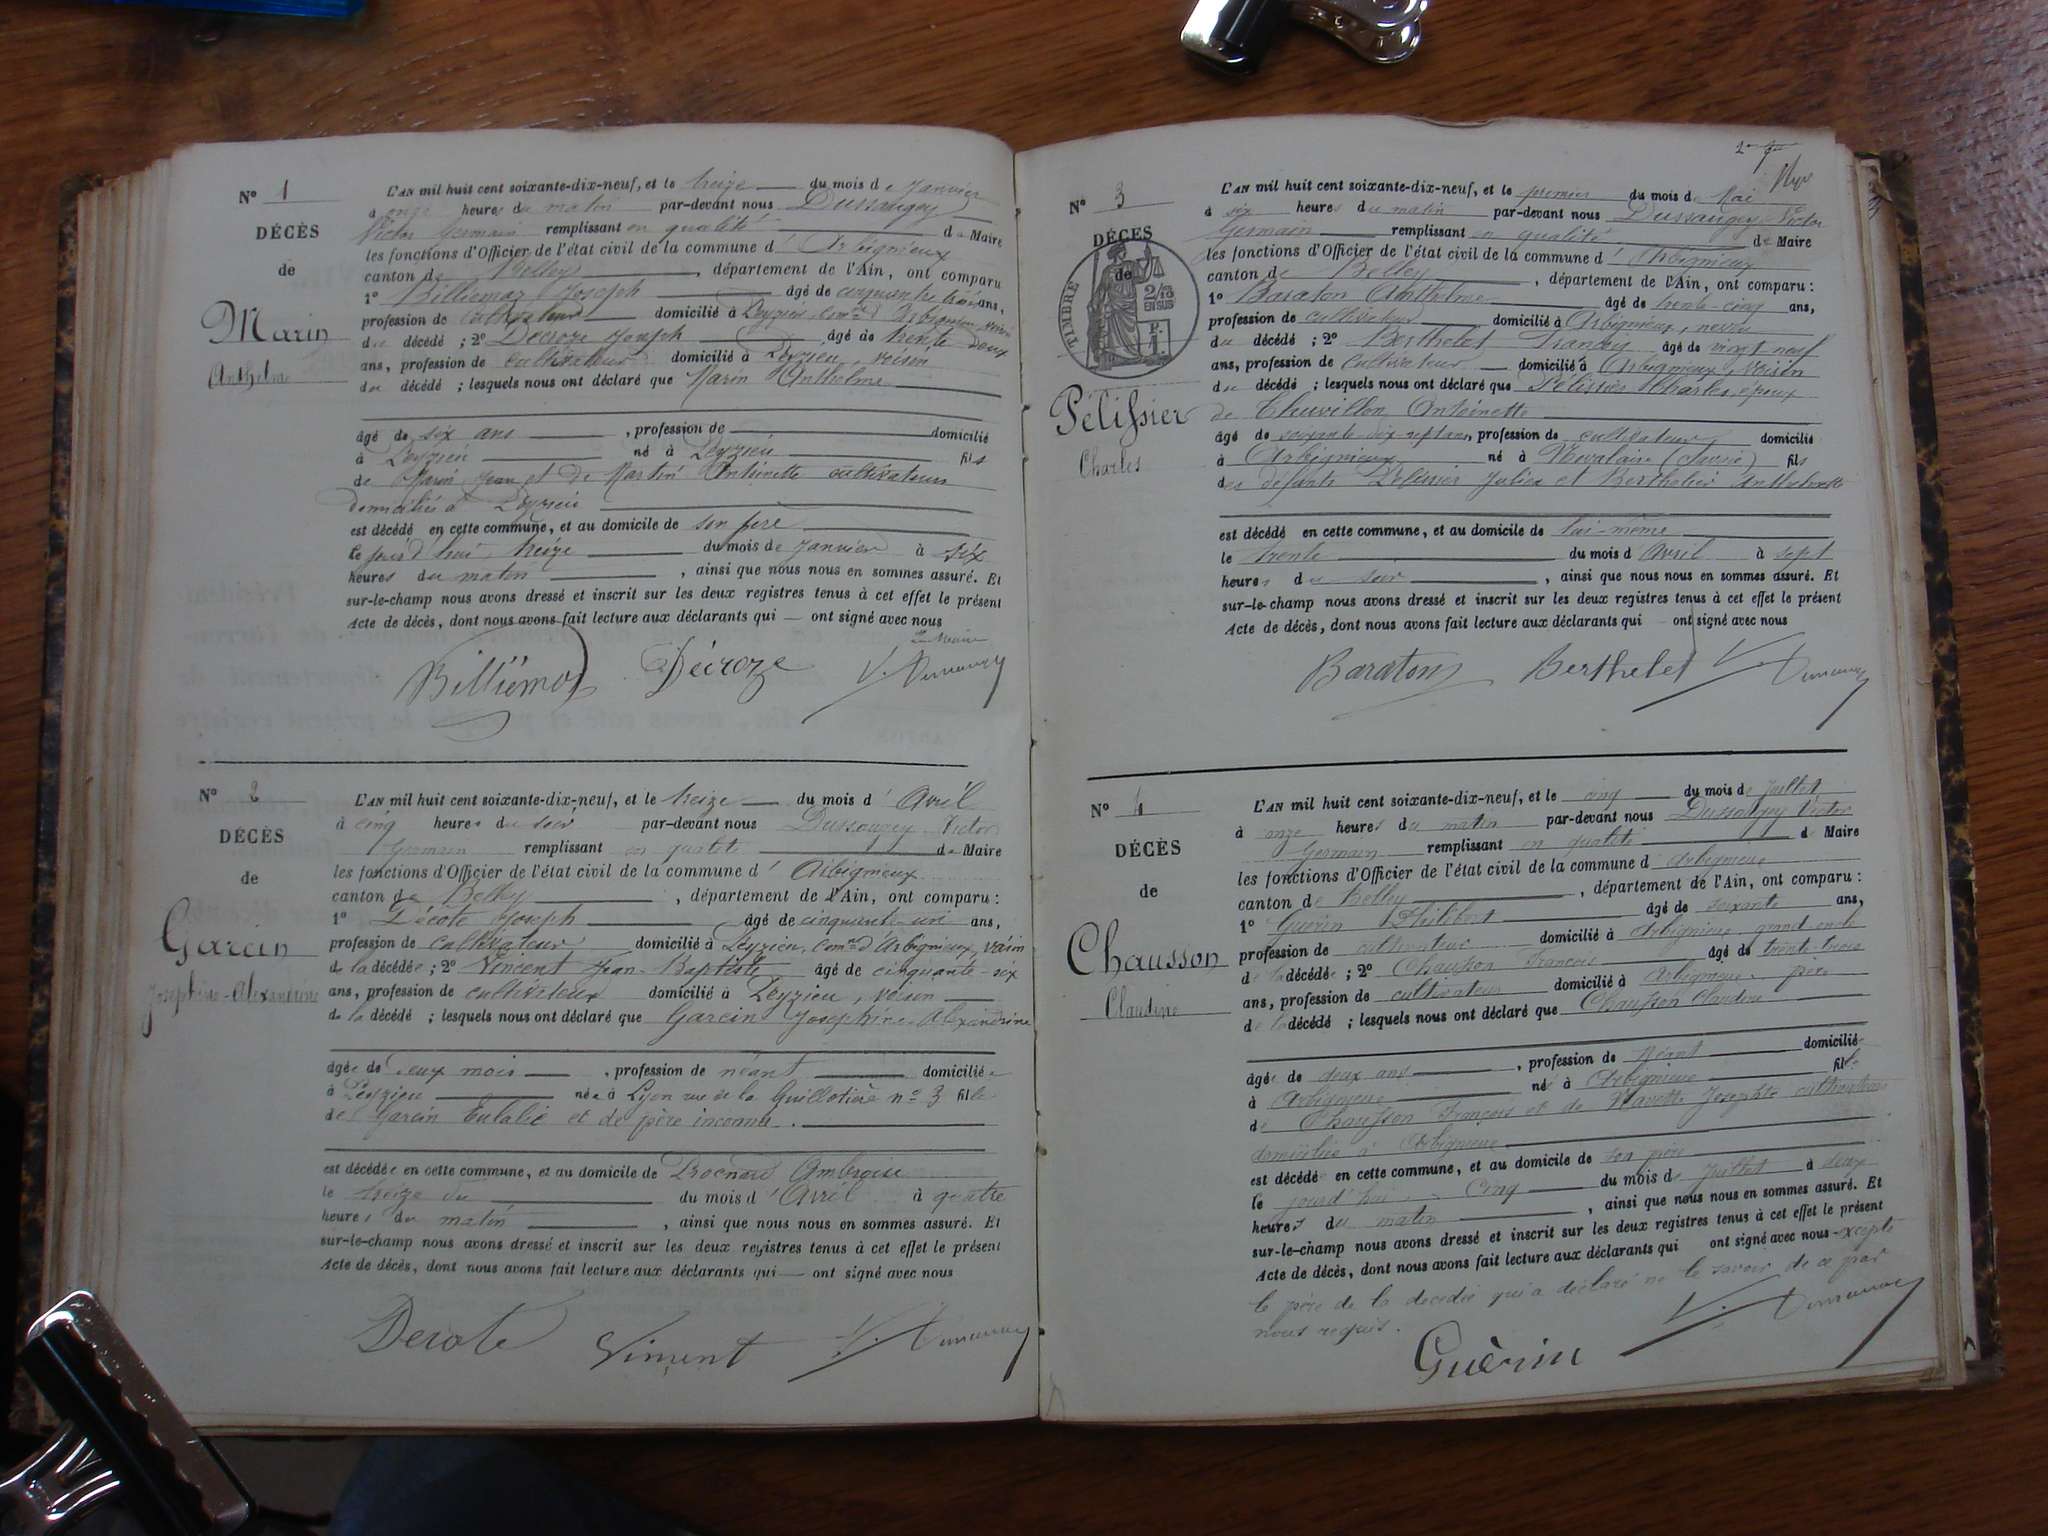 N° 1
DÉCÈS
de
Marin
Anthelme
L'AN mil huit cent soixante-dix-neuf, et le treize du mois de Janvier
à onze heures du matin par-devant nous Dussaugey
Victor Germain remplissant en qualité de Maire
les fonctions d'Officier de l'état civil de la commune d'Arbignieux
canton de Belley, département de l'Ain, ont comparu
1° Billiemaz Joseph âgé de cinquante trois ans,
profession de cultivateur domicilié à Peyzieu, com.ne d'Arbignieux, voisin
du décédé ; 2° Décroze Joseph âgé de trente deux
ans, profession de cultivateur domicilié à Peyzieu, voisin
du décédé ; lesquels nous ont déclaré que Marin Anthelme
âgé de six ans, profession de domicilié
à Peyzieu né à Peyzieu fils
de Marin Jean et de Martin Antoinette cultivateurs
domiciliés à Peyzieu
est décédé en cette commune, et au domicile de son père
le jourd'hui treize du mois de Janvier à six
heures du matin, ainsi que nous nous en sommes assuré. Et
sur-le-champ nous avons dressé et inscrit sur les deux registres tenus à cet effet le présent
Acte de décès, dont nous avons fait lecture aux déclarants qui — ont signé avec nous
Billiémaz Décroze V. Dussaugey
N° 2
DÉCÈS
de
Garcin
Joséphine-Alexandrine
L'AN mil huit cent soixante-dix-neuf, et le treize du mois d'Avril
à cinq heures du soir par-devant nous Dussaugey Victor
Germain remplissant en qualité de Maire
les fonctions d'Officier de l'état civil de la commune d'Arbignieux
canton de Belley, département de l'Ain, ont comparu :
1° Décote Joseph âgé de cinquante-un ans,
profession de cultivateur domicilié à Peyzieu, com.ne d'Arbignieux, voisin
de la décédée ; 2° Vincent Jean-Baptiste âgé de cinquante-six
ans, profession de cultivateur domicilié à Peyzieu, voisin
de la décédé ; lesquels nous ont déclaré que Garcin Joséphine-Alexandrine
âgée de deux mois, profession de néant domiciliée
à Peyzieu née à Lyon rue de la Guillotière n° 3 fille
de Garcin Eulalie et de père inconnu.
est décédée en cette commune, et au domicile de Ambroise
le treize du du mois d'Avril à quatre
heures du matin, ainsi que nous nous en sommes assuré. Et
sur-le-champ nous avons dressé et inscrit sur les deux registres tenus à cet effet le présent
Acte de décès, dont nous avons fait lecture aux déclarants qui — ont signé avec nous
Decote Vincent V. Dussaugey
N° 3
DÉCÈS
de
TIMBRE
2/10 EN SUS
Pélissier
Charles
L'AN mil huit cent soixante-dix-neuf, et le premier du mois de Mai
à six heures du matin par-devant nous Dussaugey Victor
Germain remplissant en qualité de Maire
les fonctions d'Officier de l'état civil de la commune d'Arbignieux
canton de Belley, département de l'Ain, ont comparu :
1° Baraton Anthelme âgé de trente-cinq ans,
profession de cultivateur domicilié à Arbignieux, neveu
du décédé ; 2° Berthelet François âgé de vingt neuf
ans, profession de cultivateur domicilié à Arbignieux, voisin
du décédé ; lesquels nous ont déclaré que Pélissier Charles, époux
de Antoinette
âgé de soixante-dix sept ans, profession de cultivateur domicilié
à Arbignieux né à (Savoie) fils
des défunts Pélissier Julien et
est décédé en cette commune, et au domicile de lui-même
le trente du mois d'Avril à sept
heures du soir, ainsi que nous nous en sommes assuré. Et
sur-le-champ nous avons dressé et inscrit sur les deux registres tenus à cet effet le présent
Acte de décès, dont nous avons fait lecture aux déclarants qui — ont signé avec nous
Baraton Berthelet V. Dussaugey
N° 4
DÉCÈS
de
Chausson
Claudine
L'AN mil huit cent soixante-dix-neuf, et le cinq du mois de Juillet
à onze heures du matin par-devant nous Dussaugey Victor
Germain remplissant en qualité de Maire
les fonctions d'Officier de l'état civil de la commune d'Arbignieu
canton de Belley, département de l'Ain, ont comparu :
1° Guérin Philibert âgé de soixante ans,
profession de cultivateur domicilié à Arbignieu, grand-oncle
de la décédée ; 2° Chausson François âgé de trente-trois
ans, profession de cultivateur domicilié à Arbignieu, père
de la décédé ; lesquels nous ont déclaré que Chausson Claudine
âgée de deux ans, profession de Néant domiciliée
à Arbignieu née à Arbignieu fille
de Chausson François et de Josephte cultivateurs
domiciliés à Arbignieu
est décédée en cette commune, et au domicile de son père
le jourd'hui Cinq du mois de Juillet à deux
heures du matin, ainsi que nous nous en sommes assuré. Et
sur-le-champ nous avons dressé et inscrit sur les deux registres tenus à cet effet le présent
Acte de décès, dont nous avons fait lecture aux déclarants qui ont signé avec nous excepté
le père de la décédée qui a déclaré ne le savoir de ce par
nous requis.
Guérin V. Dussaugey